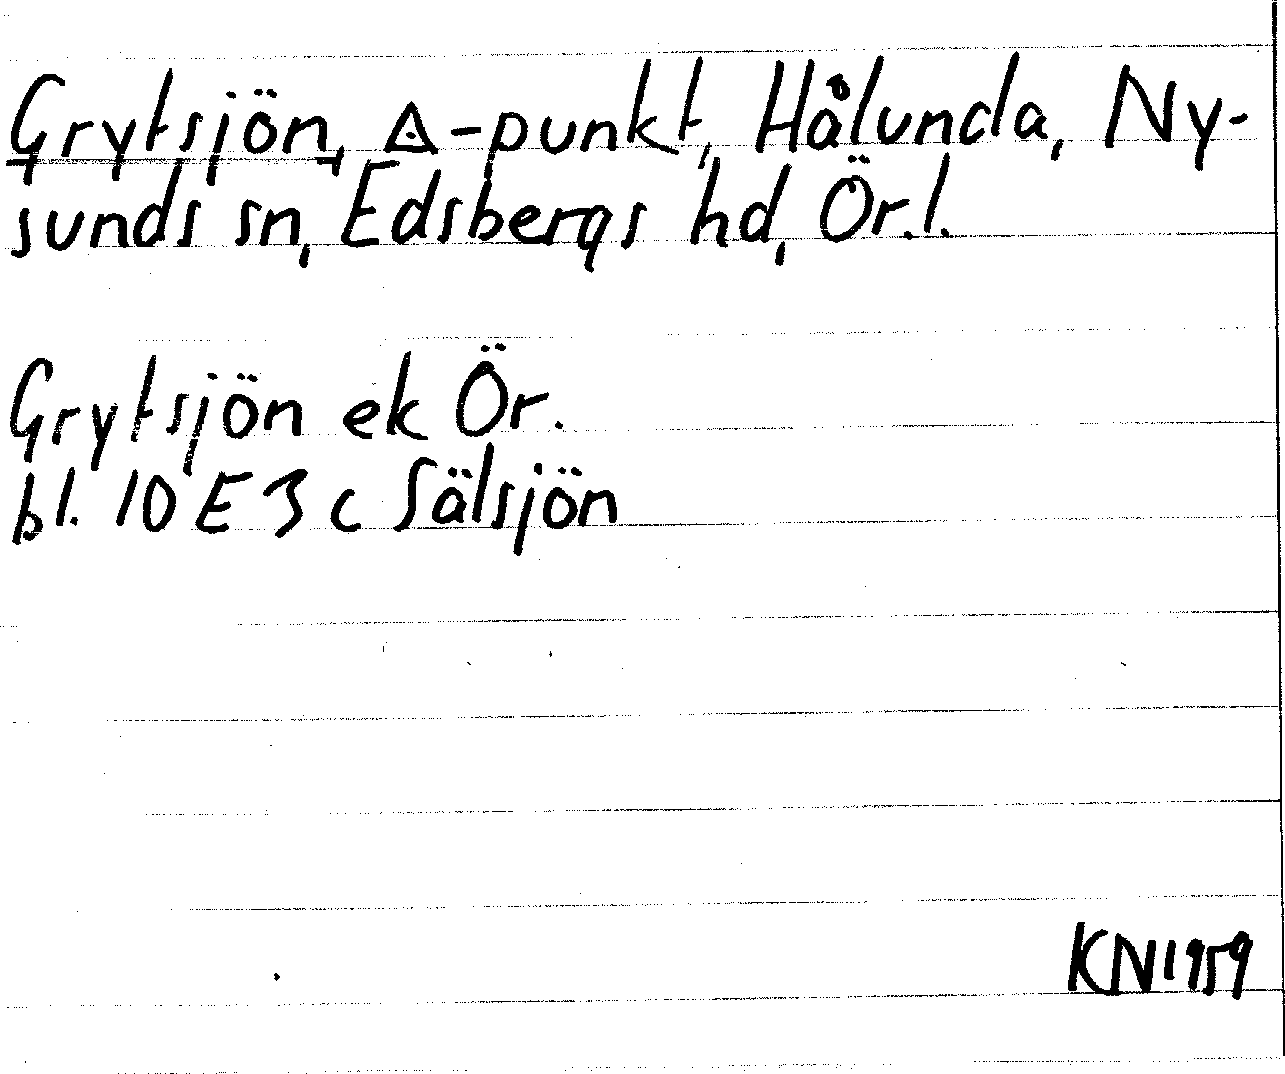 Grytsjön, △-punkt, Hålunda, Ny-
sunds sn, Edsbergs hd, Ör.l.
Grytsjön ek Ör.
bl. 10 E 3 c Sälsjön
KN1959